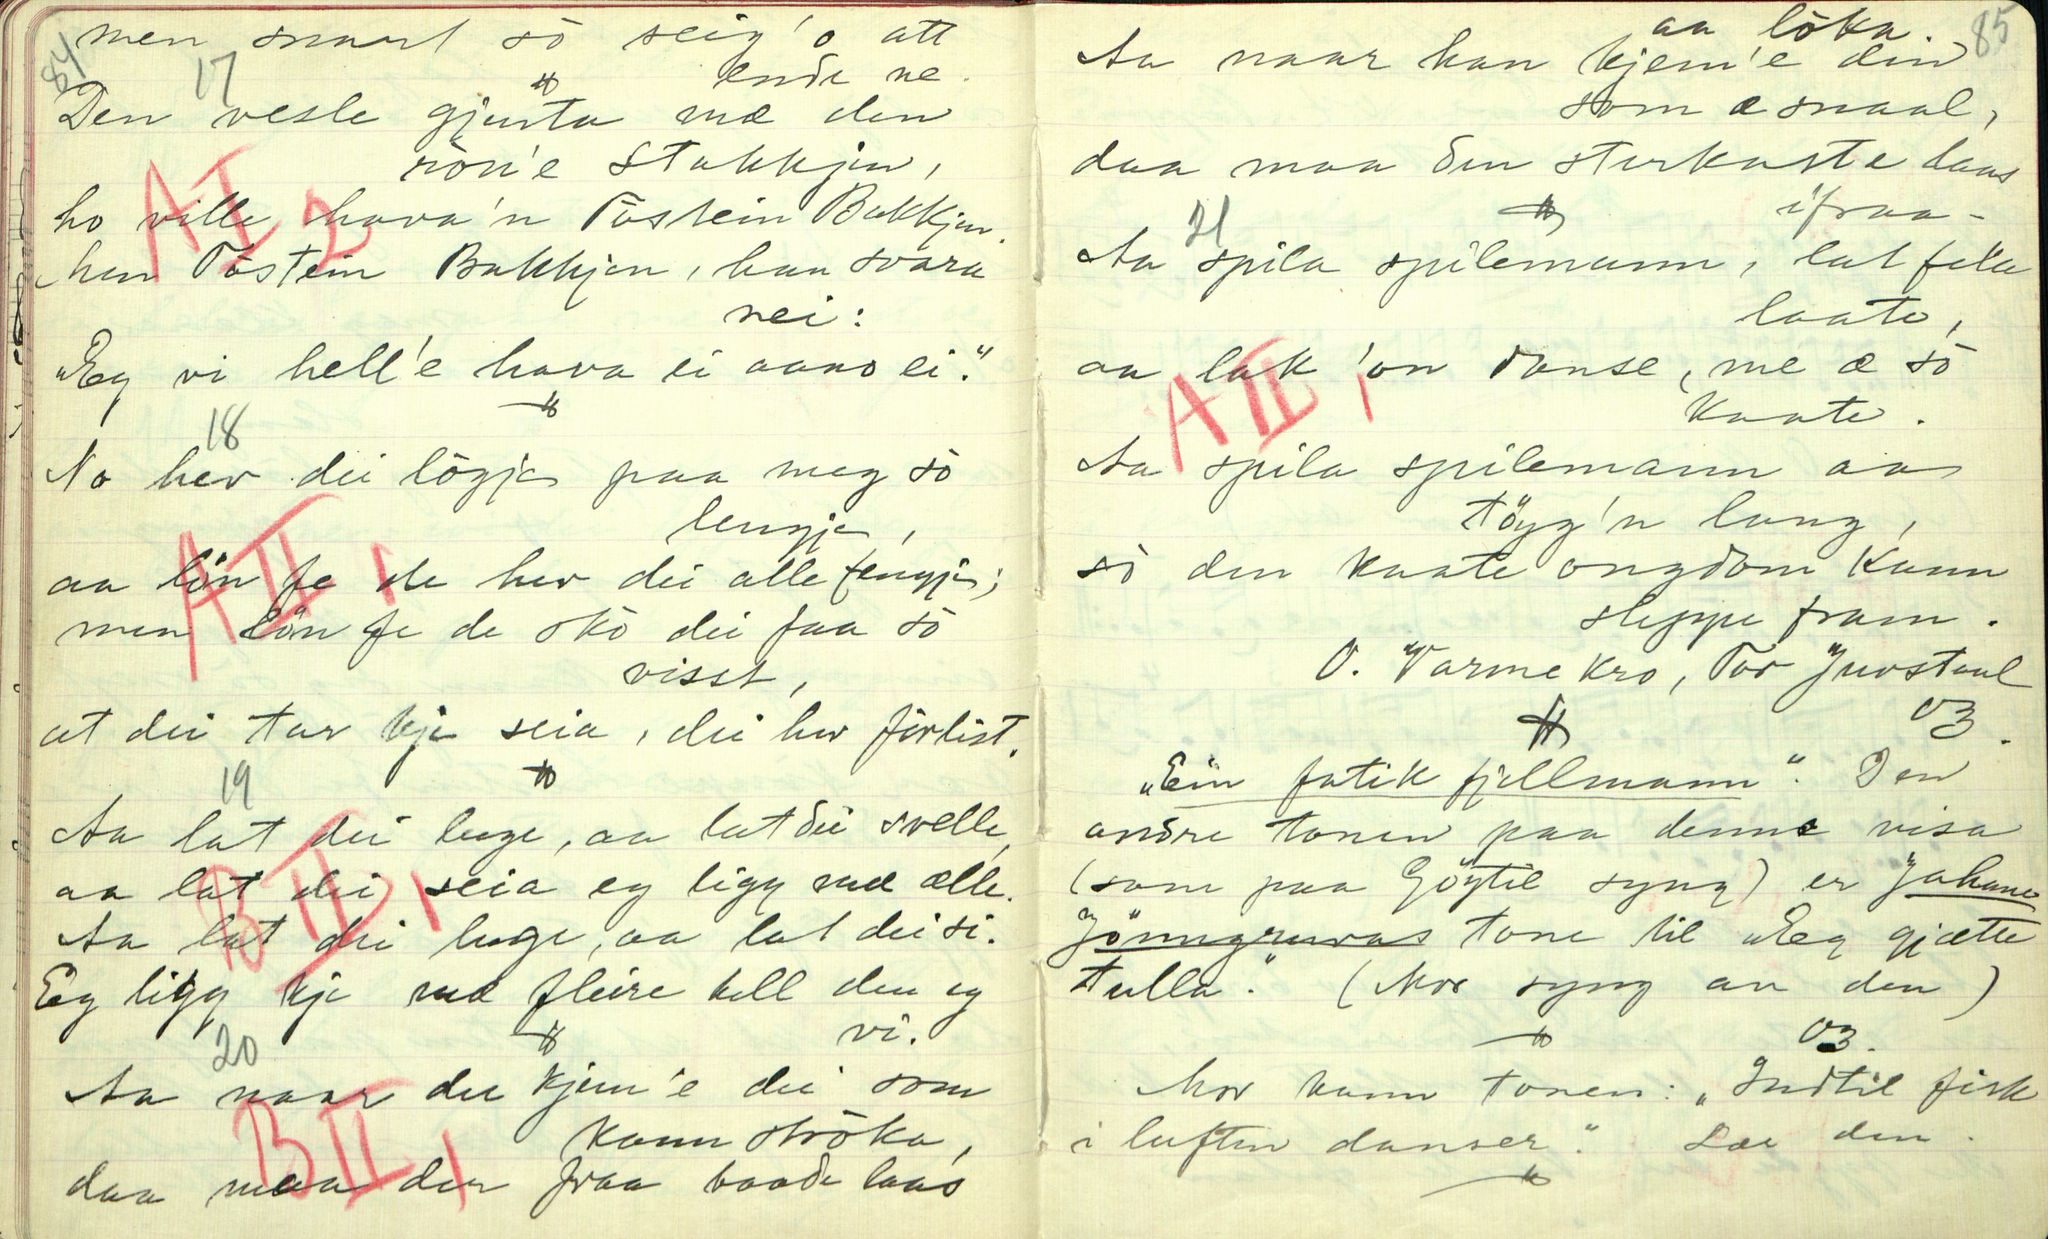 84
men snart sò seig'o att
ende ne.
17
Den vesle gjenta mæ den
ròn'e stakkjen,
ho ville hava'n Tòstein Bakkjen.
Men Tòstein Bakkjen, han svara
nei:
"Eg vi hell'e hava ei aano ei."
AI 2
18
No hev dei lögje paa meg sò
lengje,
aa lön fe de hev dei alle fengje;
men lön fe de skò dei faa sò
visst,
at dei tar kje seia, dei hev förlist.
AII 1
19
Aa lat dei luge, aa lat dei svelle,
aa lat dei seia eg ligg mæ alle.
Aa lat dei luge, aa lat dei si.
Eg ligg kje mæ fleire kell den eg
vi.
BII 1
20
Aa naar dei kjem'e dei som
kann stròka,
daa maa der fraa baade laas
BII 1
85
aa lòka.
Aa naar han kjem'e din
som æ snaal,
daa maa den sterkaste laas
ifraa-
21
Aa spila spilemann, lat fela
laate,
aa lat 'on danse, me æ sò
kaate.
AII 1
Aa spila spilemann aa
tögg'n lang,
sò den kaate ongdom kann
sleppe fram.
O. Varmekro, Tov Juvstaul
03.
"Ein fatik fjellmann". Den
andre tonen paa denne visa
(som paa Göytil syng) er Johans
Jönngruvas tone til "Eg gjætte
tulla." (Mor syng an den)
03.
Mor kann tonen: "Indtil fisk
i luften danser." Lær den.